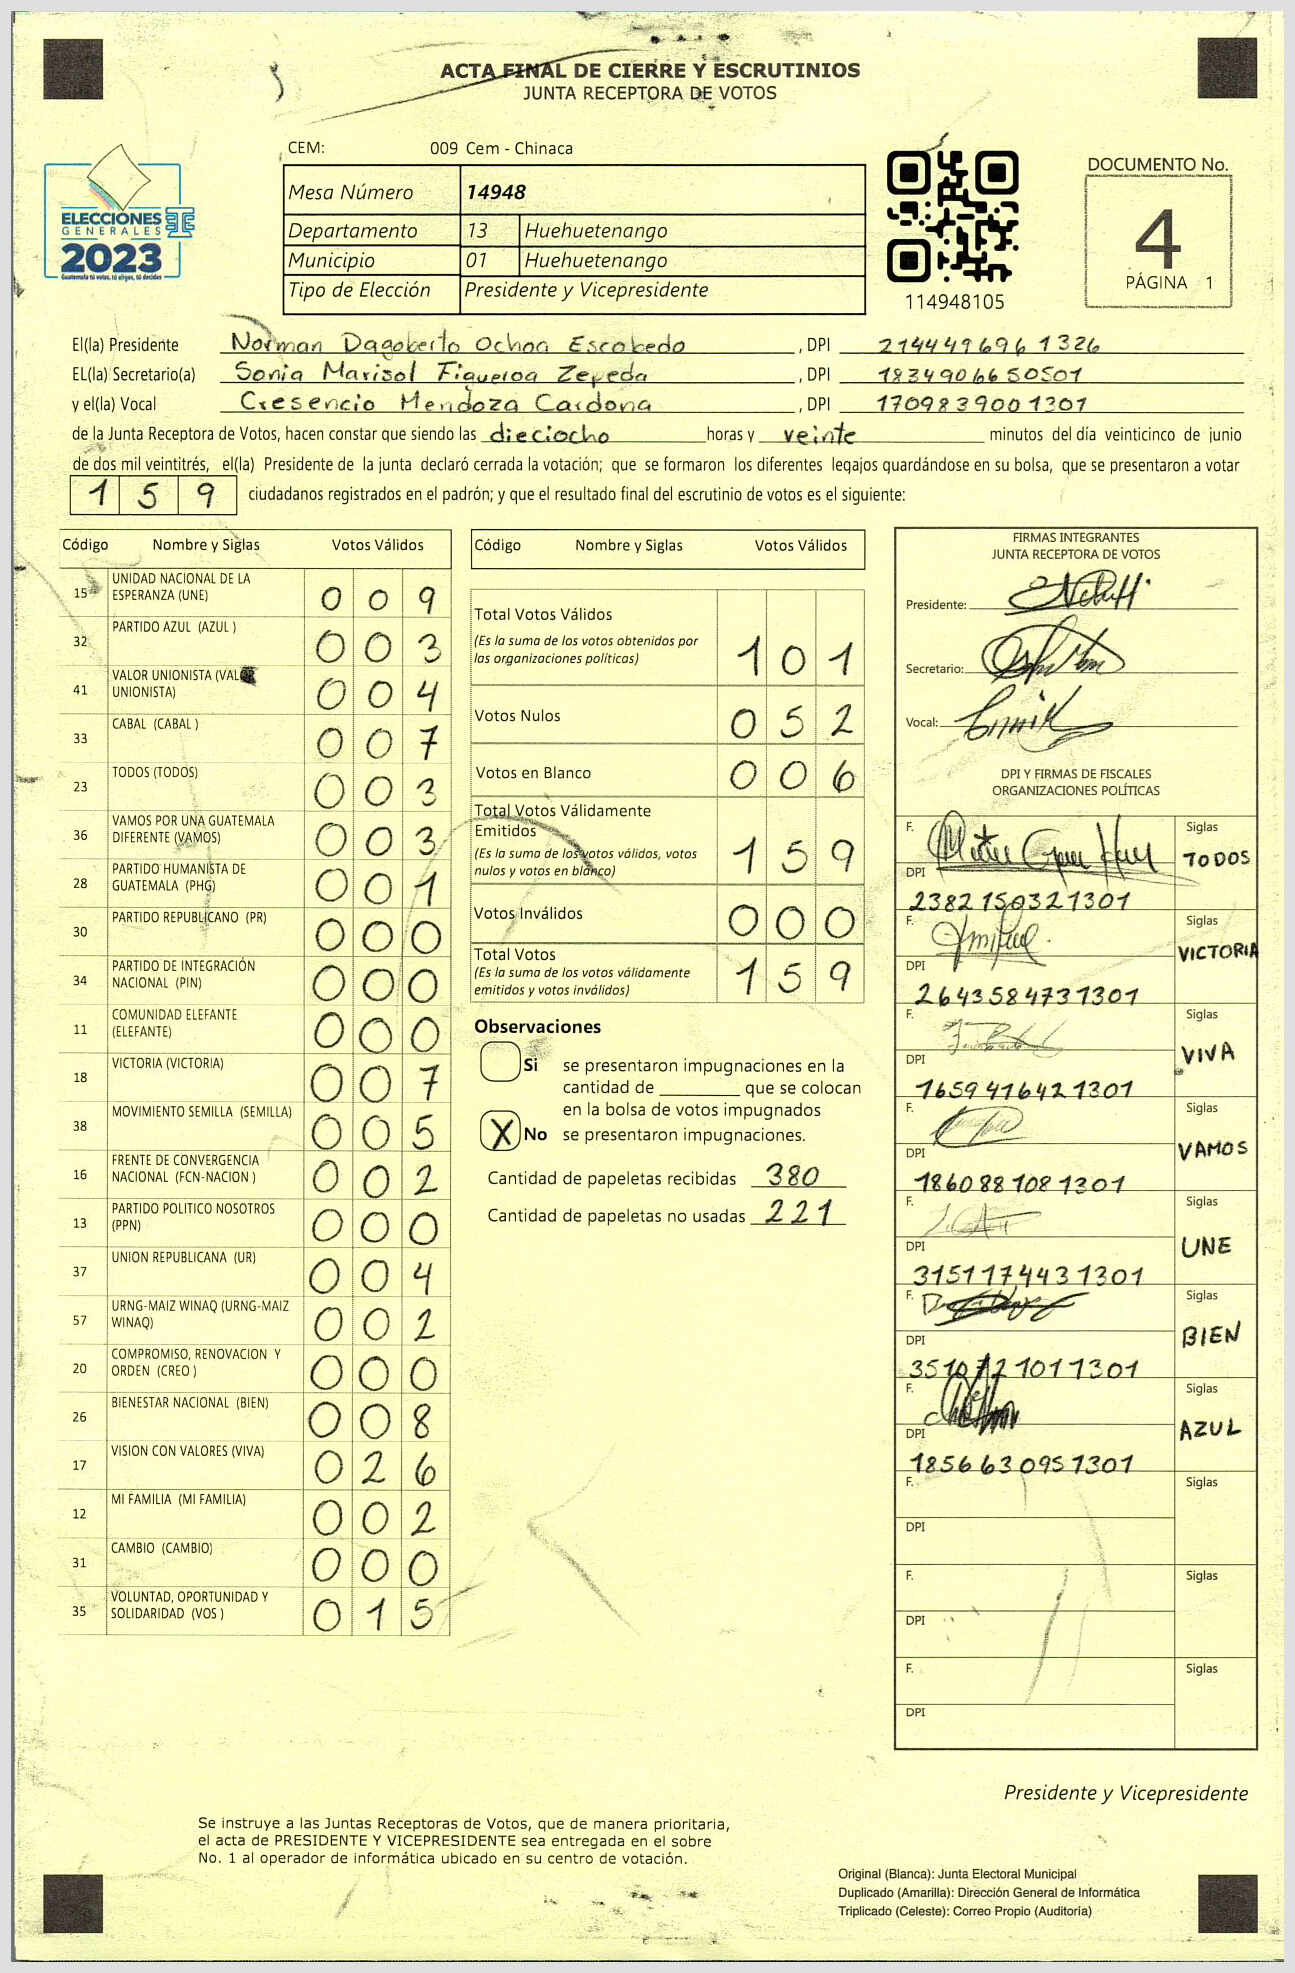 ACTA FINAL DE CIERRE Y ESCRUTINIOS
JUNTA RECEPTORA DE VOTOS
CEM: 009 Cem - Chinaca
Mesa Número 14948
Departamento 13 Huehuetenango
Municipio 01 Huehuetenango
Tipo de Elección Presidente y Vicepresidente
ELECCIONES
GENERALES
2023
Guatemala tú votas, tú eliges, tú decides
114948105
DOCUMENTO No.
4
PÁGINA 1
El(la) Presidente Norman Dagoberto Ochoa Escobedo , DPI 2144496961326
EL(la) Secretario(a) Sonia Marisol Figueroa Zepeda , DPI 1834906650501
y el(la) Vocal Cresencio Mendoza Cardona , DPI 1709839001301
de la Junta Receptora de Votos, hacen constar que siendo las dieciocho horas y veinte minutos del día veinticinco de junio
de dos mil veintitrés, el(la) Presidente de la junta declaró cerrada la votación; que se formaron los diferentes legajos guardándose en su bolsa, que se presentaron a votar
1 5 9 ciudadanos registrados en el padrón; y que el resultado final del escrutinio de votos es el siguiente:
Código Nombre y Siglas Votos Válidos
15 UNIDAD NACIONAL DE LA
ESPERANZA (UNE) 0 0 9
32 PARTIDO AZUL (AZUL ) 0 0 3
41 VALOR UNIONISTA (VALOR
UNIONISTA) 0 0 4
33 CABAL (CABAL ) 0 0 7
23 TODOS (TODOS) 0 0 3
36 VAMOS POR UNA GUATEMALA
DIFERENTE (VAMOS) 0 0 3
28 PARTIDO HUMANISTA DE
GUATEMALA (PHG) 0 0 1
30 PARTIDO REPUBLICANO (PR) 0 0 0
34 PARTIDO DE INTEGRACIÓN
NACIONAL (PIN) 0 0 0
11 COMUNIDAD ELEFANTE
(ELEFANTE) 0 0 0
18 VICTORIA (VICTORIA) 0 0 7
38 MOVIMIENTO SEMILLA (SEMILLA) 0 0 5
16 FRENTE DE CONVERGENCIA
NACIONAL (FCN-NACION ) 0 0 2
13 PARTIDO POLITICO NOSOTROS
(PPN) 0 0 0
37 UNION REPUBLICANA (UR) 0 0 4
57 URNG-MAIZ WINAQ (URNG-MAIZ
WINAQ) 0 0 2
20 COMPROMISO, RENOVACION Y
ORDEN (CREO ) 0 0 0
26 BIENESTAR NACIONAL (BIEN) 0 0 8
17 VISION CON VALORES (VIVA) 0 2 6
12 MI FAMILIA (MI FAMILIA) 0 0 2
31 CAMBIO (CAMBIO) 0 0 0
35 VOLUNTAD, OPORTUNIDAD Y
SOLIDARIDAD (VOS ) 0 1 5
Código Nombre y Siglas Votos Válidos
Total Votos Válidos
(Es la suma de los votos obtenidos por
las organizaciones políticas) 1 0 1
Votos Nulos 0 5 2
Votos en Blanco 0 0 6
Total Votos Válidamente
Emitidos
(Es la suma de los votos válidos, votos
nulos y votos en blanco) 1 5 9
Votos Inválidos 0 0 0
Total Votos
(Es la suma de los votos válidamente
emitidos y votos inválidos) 1 5 9
Observaciones
Si se presentaron impugnaciones en la
cantidad de ________ que se colocan
en la bolsa de votos impugnados
X No se presentaron impugnaciones.
Cantidad de papeletas recibidas 380
Cantidad de papeletas no usadas 221
FIRMAS INTEGRANTES
JUNTA RECEPTORA DE VOTOS
Presidente:
Secretario:
Vocal:
DPI Y FIRMAS DE FISCALES
ORGANIZACIONES POLÍTICAS
F. Siglas
TODOS
DPI
2382150321301
F. Siglas
VICTORIA
DPI
2643584731301
F. Siglas
VIVA
DPI
1659416421301
F. Siglas
VAMOS
DPI
1860881081301
F. Siglas
UNE
DPI
3151174431301
F. Siglas
BIEN
DPI
F. Siglas
AZUL
DPI
1856630951301
F. Siglas
DPI
F. Siglas
DPI
F. Siglas
DPI
Presidente y Vicepresidente
Se instruye a las Juntas Receptoras de Votos, que de manera prioritaria,
el acta de PRESIDENTE Y VICEPRESIDENTE sea entregada en el sobre
No. 1 al operador de informática ubicado en su centro de votación.
Original (Blanca): Junta Electoral Municipal
Duplicado (Amarilla): Dirección General de Informática
Triplicado (Celeste): Correo Propio (Auditoría)